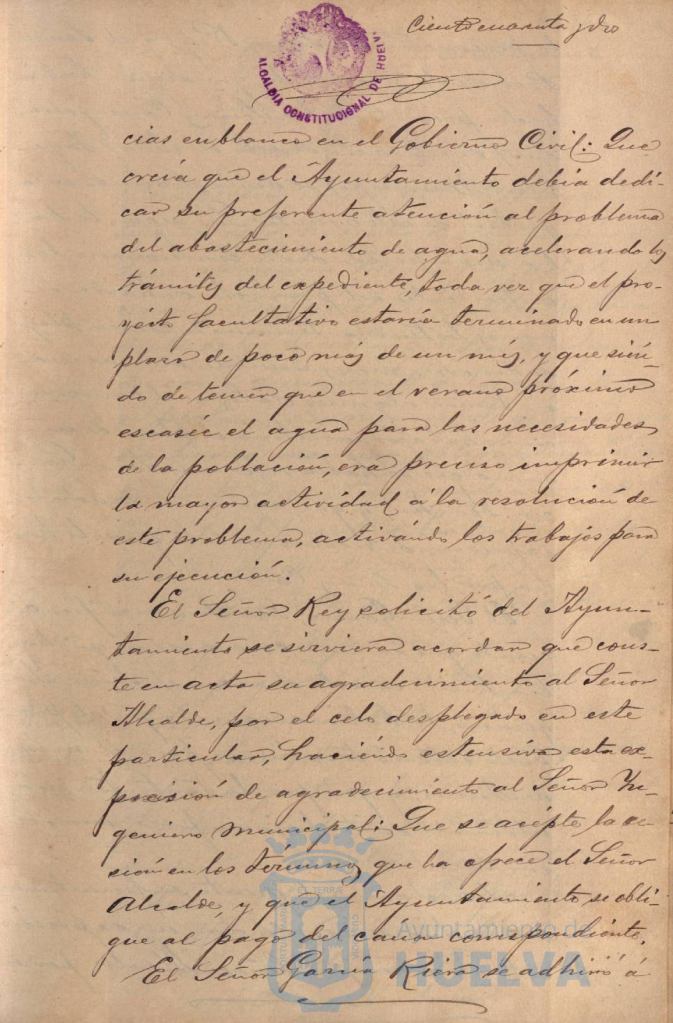 Ciento cuarenta y dos
ALCALDIA CONSTITUCIONAL DE HUELVA
cias en blanco en el Gobierno Civil: Que
creía que el Ayuntamiento debia dedi-
car su preferente atención al problema
del abastecimiento de agua, acelerando los
trámites del expediente, toda vez que el pro-
yécto facultativo estaría terminado en un
plazo de poco más de un més, y que sién-
do de temer que en el verano próximo
escasée el agua para las necesidades
de la población, era preciso imprimir
la mayor actividad á la resolución de
este problema, activándo los trabajos para
su ejecución.
El Señor Rey solicitó del Ayun-
tamiento se sirviera acordar que cons-
te en acta su agradecimiento al Señor
Alcalde, por el celo desplegado en este
particular, haciéndo estensiva esta ex-
presión de agradecimiento al Señor Yn-
geniero municipal; Que se acépte la ce-
sión en los términos que la ofrece el Señor
Alcalde, y que el Ayuntamiento se obli-
gue al pago del cánon correspondiénte.
El Señor García Riera se adhirió á
Ayuntamiento de
HUELVA